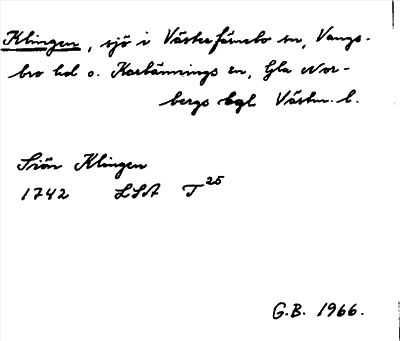 Klingen, sjö i Västerfärnebo sn, Vangs-
bro hd o. Karbennings sn, Gla Nor-
bergs bgl. Västm. l.
Siön Klingen
1742 LSA T 25
G.B. 1966.